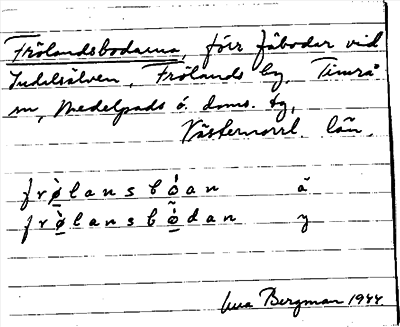 Frölandsbodarna, förr fäbodar vid
Indelsälven, Frölands by, Timrå
sn, Medelpads ö. doms. tg,
Västernorrl. län.
frø̀lansbóan ä
frø̀lansbø̃́dan y
Bergman 1944.